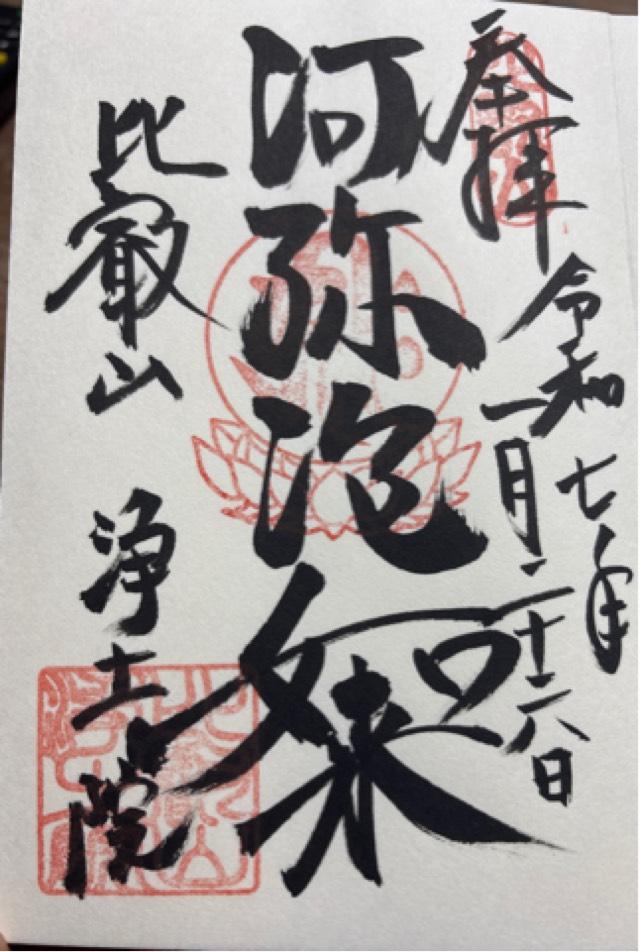 奉拝
令和七年
一月二十六日
阿弥陀如来
比叡山
浄土院